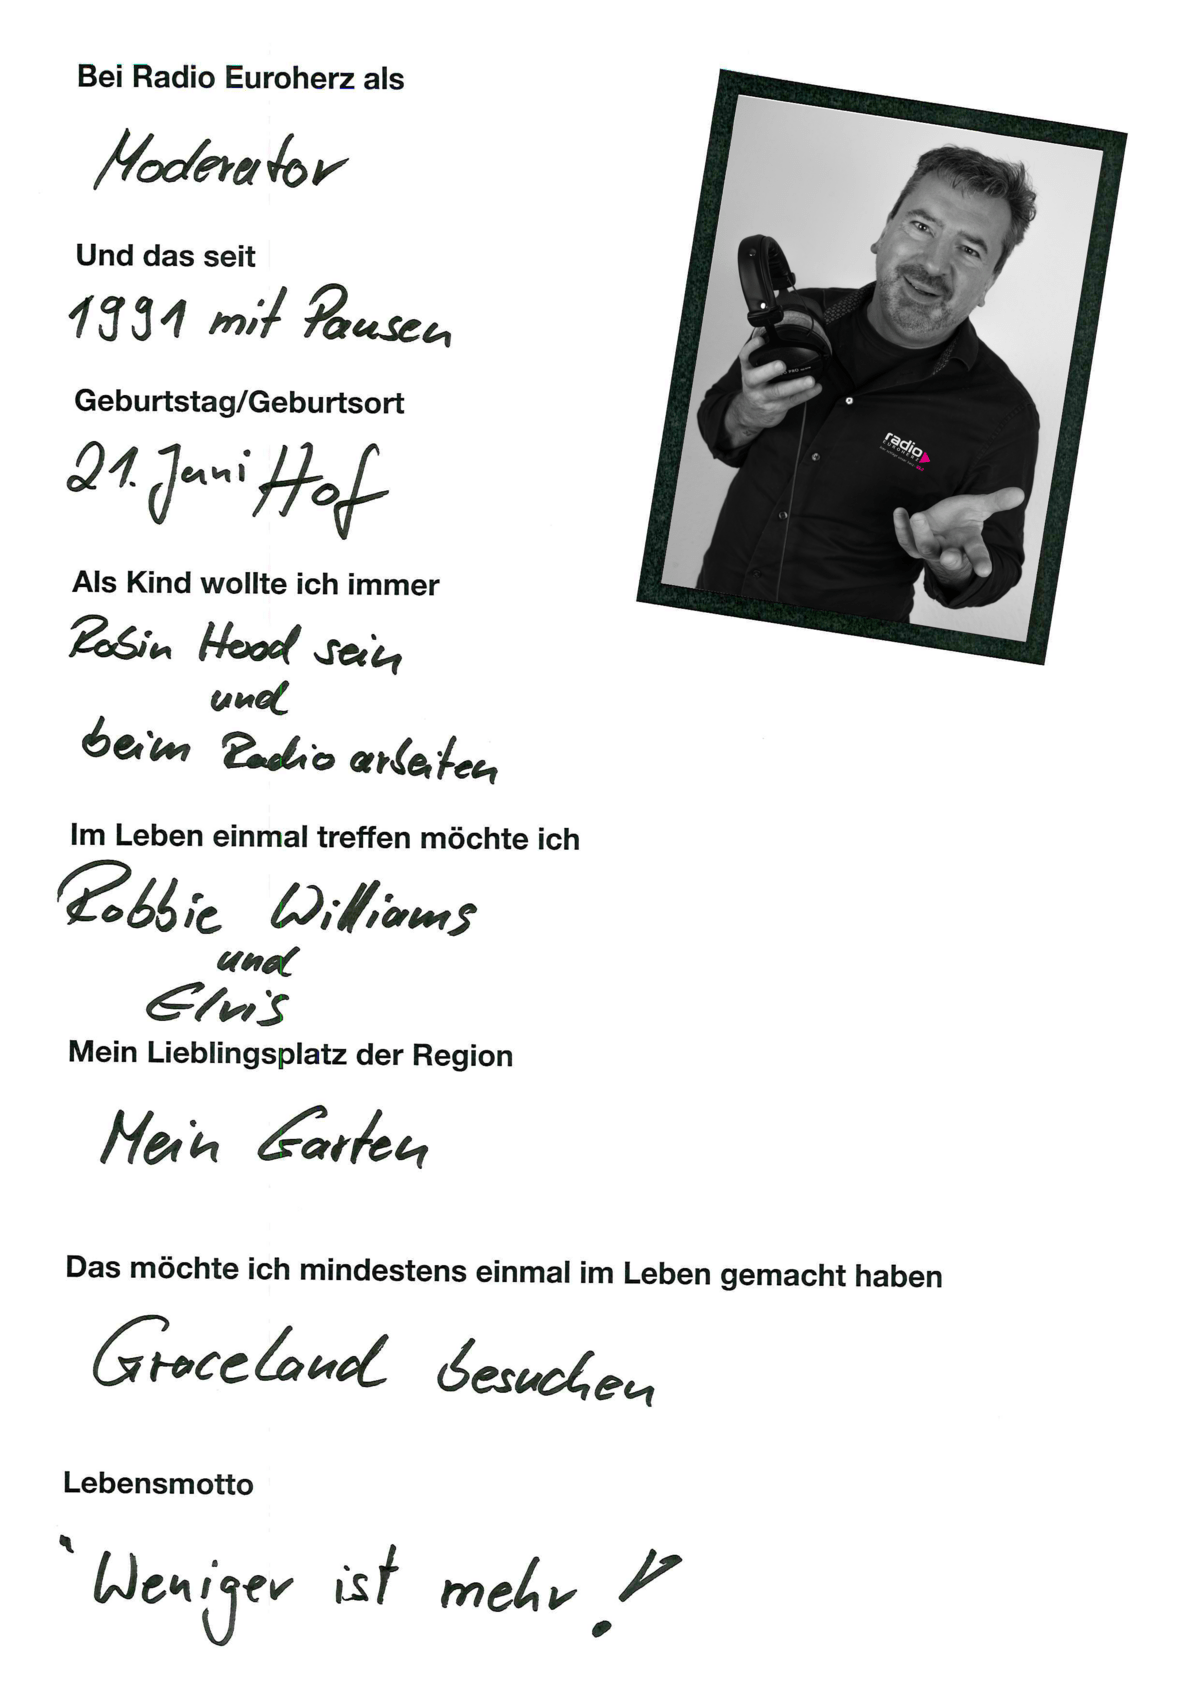 Bei Radio Euroherz als
Moderator
Und das seit
1991 mit Pausen
Geburtstag/Geburtsort
21. Juni Hof
Als Kind wollte ich immer
Robin Hood sein
und
beim Radio arbeiten
Im Leben einmal treffen möchte ich
Robbie Williams
und
Elvis
Mein Lieblingsplatz der Region
Mein Garten
Das möchte ich mindestens einmal im Leben gemacht haben
Graceland besuchen
Lebensmotto
"Weniger ist mehr!
radio
EUROHERZ
PRO